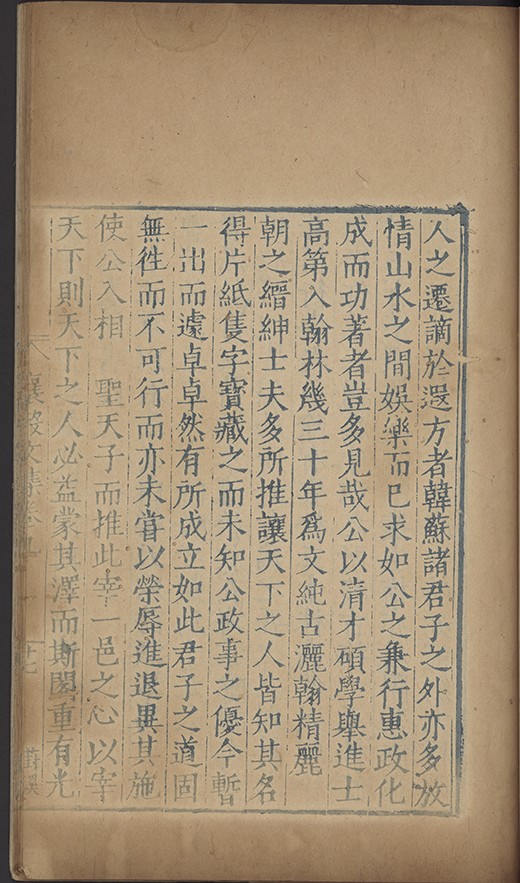 人之遷謫於遐方者韓蘇諸君子之外亦多放
情山水之間娛樂而已求如公之兼行惠政化
成而功著者豈多見哉公以清才碩學舉進士
高第入翰林幾三十年爲文純古灑翰精麗
朝之縉紳士夫多所推讓天下之人皆知其名
得片紙隻字寶藏之而未知公政事之優今暫
一出而遽卓卓然有所成立如此君子之道固
無徃而不可行而亦未嘗以榮辱進退異其施
使公入相 聖天子而推此宰一邑之心以宰
天下則天下之人必益蒙其澤而斯閣重有光
襄毅文集卷九